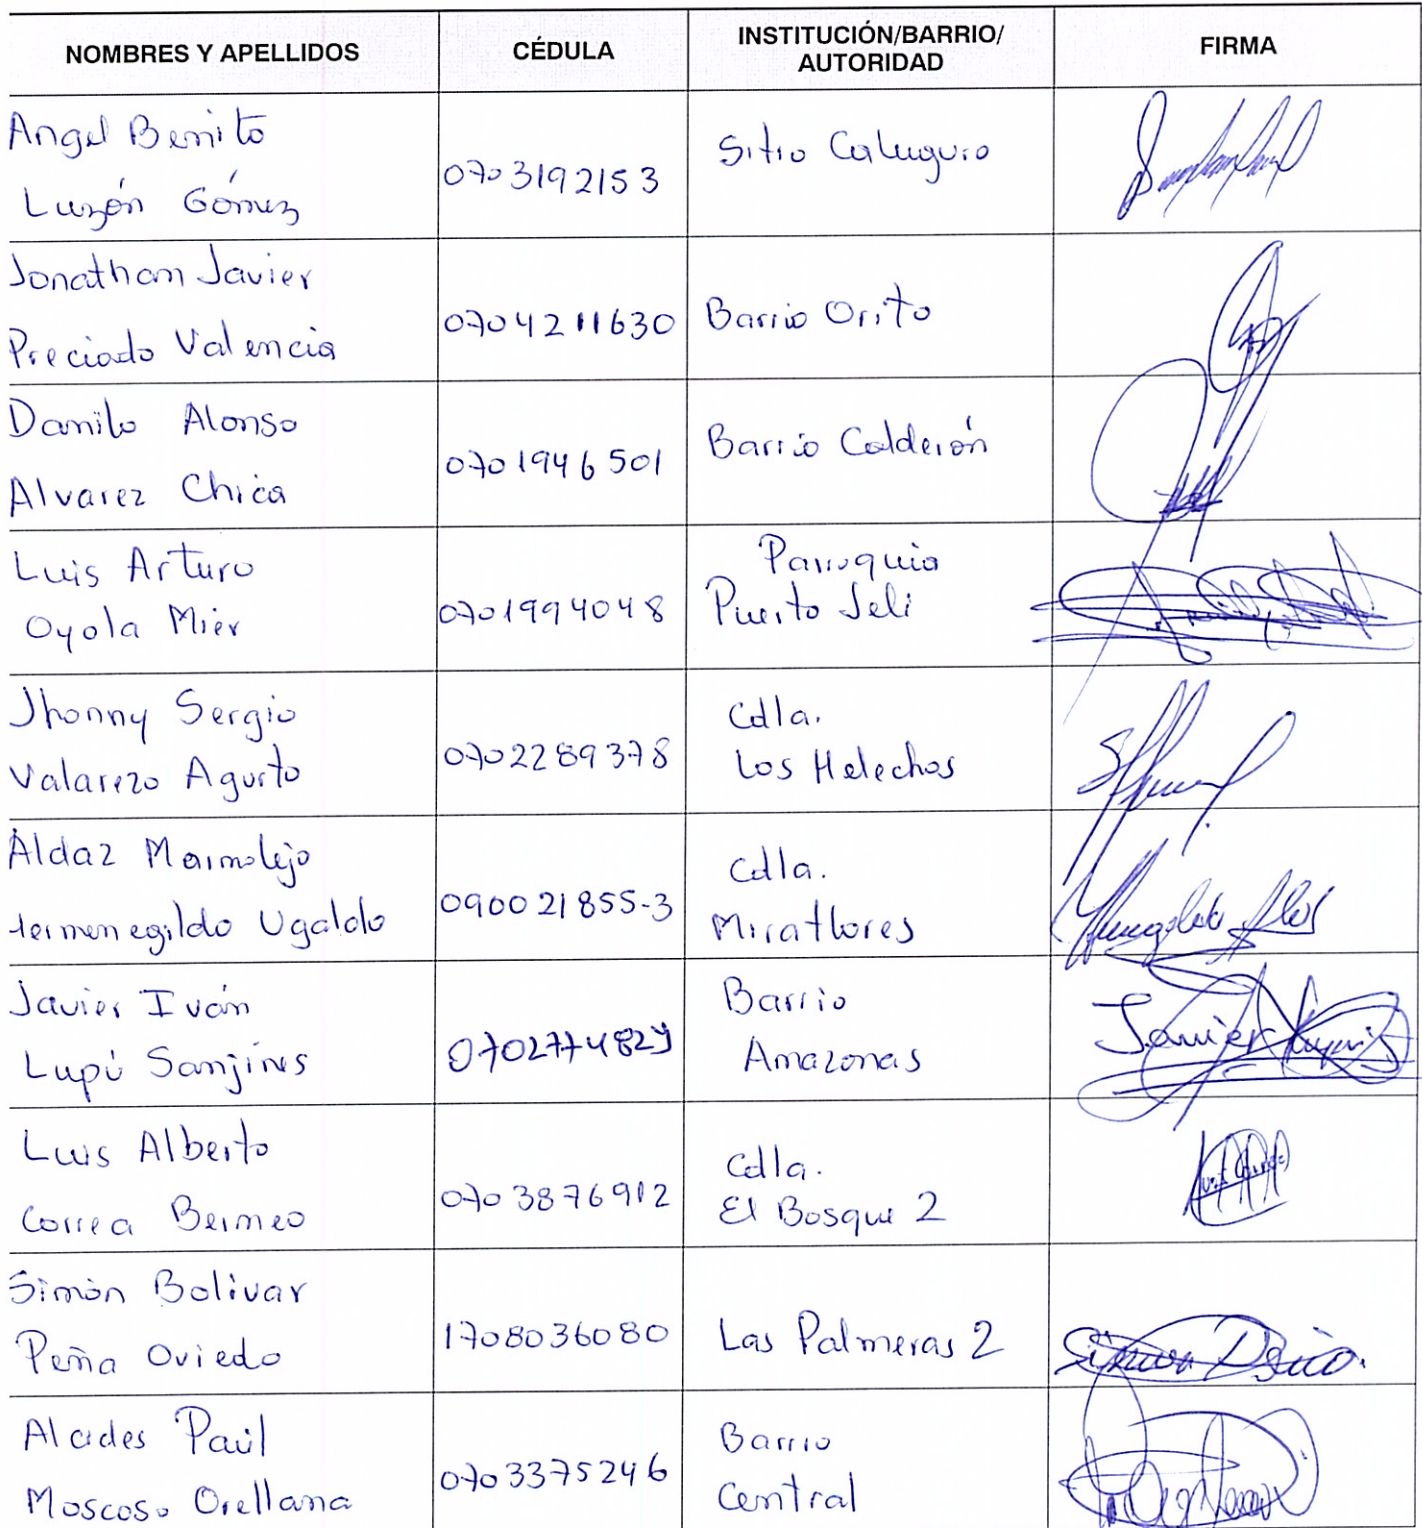 NOMBRES Y APELLIDOS
CÉDULA
INSTITUCIÓN/BARRIO/
AUTORIDAD
FIRMA
Angel Benito
Luzón Gómez
0703192153
Sitio Caluguro
Jonathan Javier
Preciado Valencia
0704211630
Barrio Orito
Danilo Alonso
Alvarez Chica
0701946501
Barrio Calderón
Luis Arturo
Oyola Mier
0701994048
Parroquia
Puerto Jeli
Jhonny Sergio
Valarezo Agurto
0702289378
Cdla.
Los Helechos
Aldaz Marmolejo
Hermenegildo Ugaldo
090021855-3
Cdla.
Miraflores
Javier Iván
Lupú Sanjines
Barrio
Amazonas
Javier
Luis Alberto
Correa Bermeo
0703876912
Cdla.
El Bosque 2
Simón Bolivar
Peña Oviedo
1708036080
Las Palmeras 2
Alcides Paúl
Moscoso Orellana
0703375246
Barrio
Central